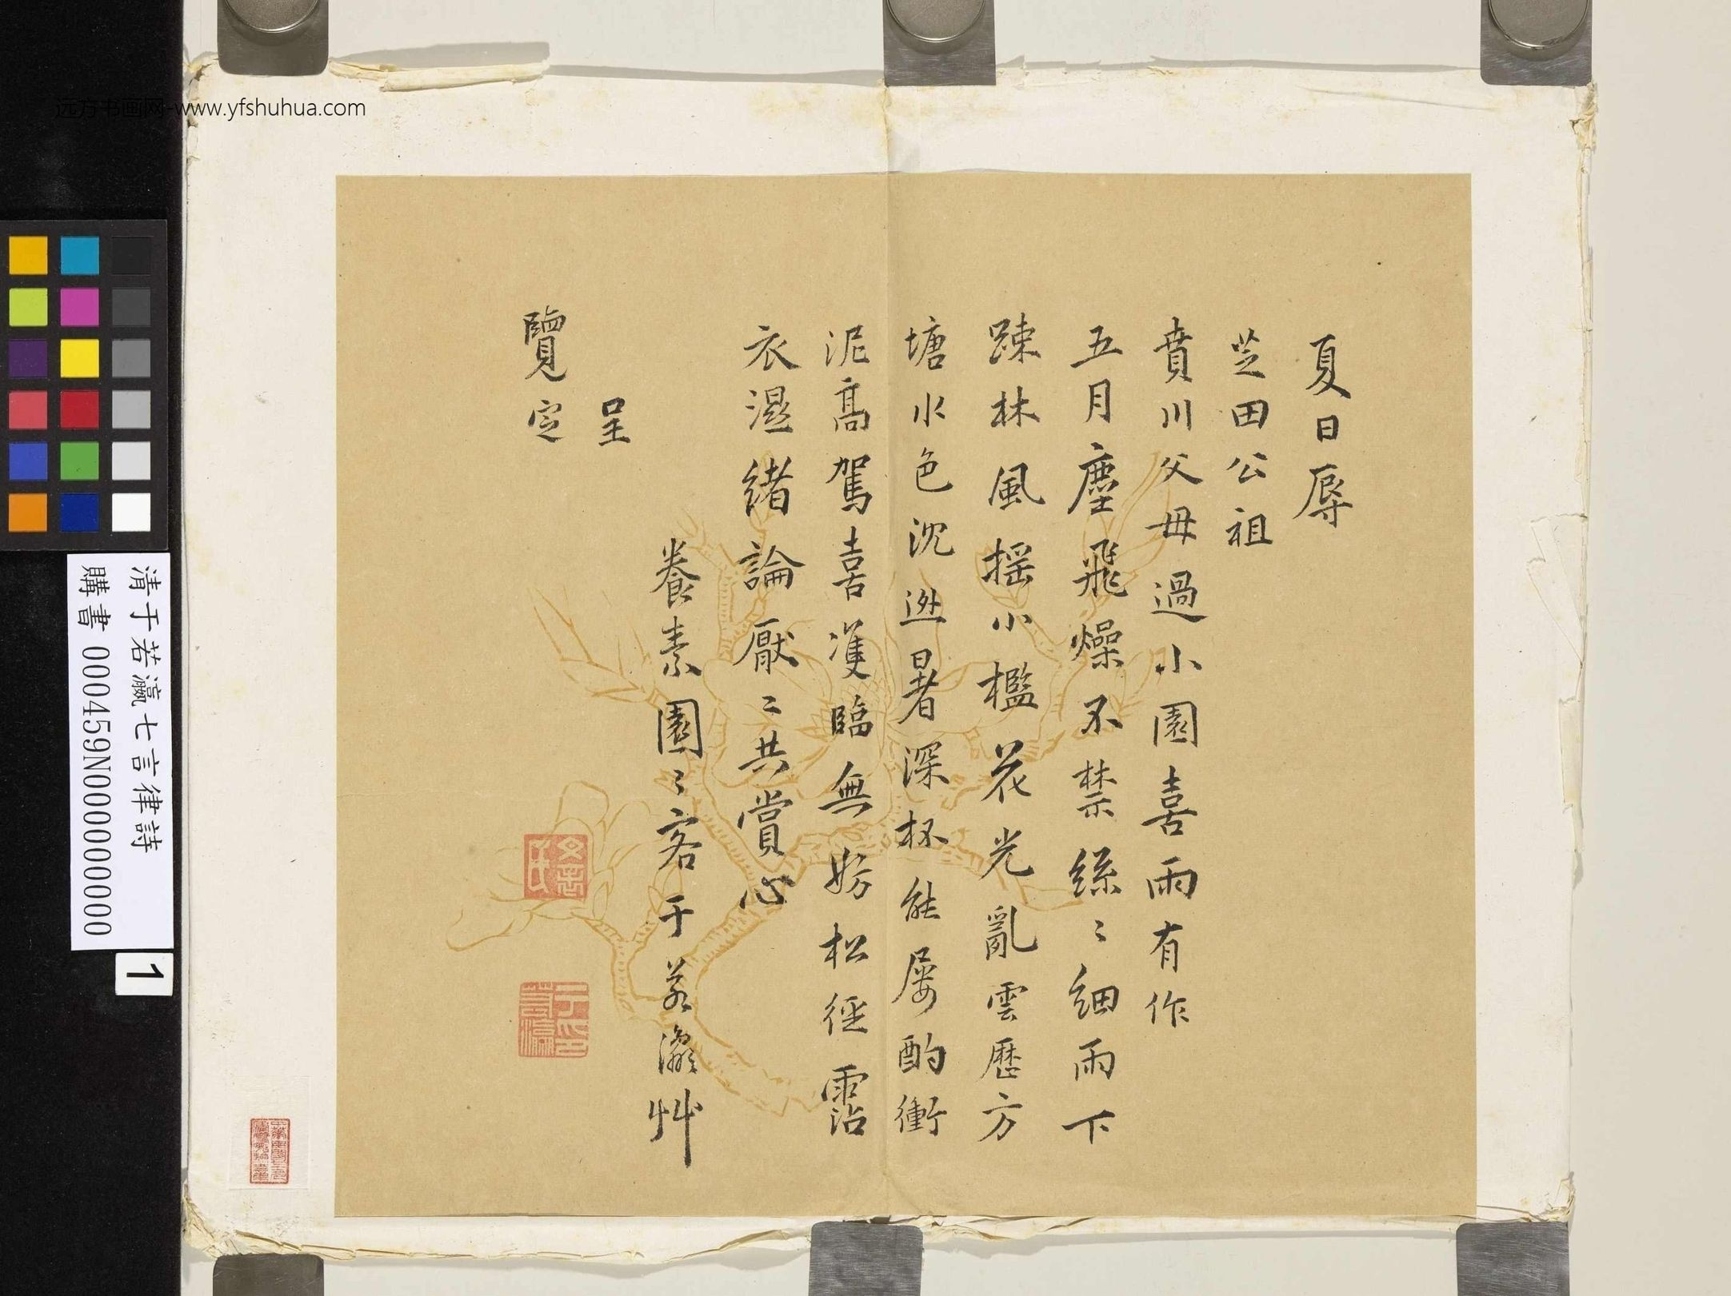 远方书画网-www.yfshuhua.com
夏日辱
芝田公祖
賁川父母過小園喜雨有作
五月塵飛燥不禁絲〻細雨下
疎林風搖小檻花光亂雲歷方
塘水色沈迯暑深杯能屢酌衝
泥高駕喜雙臨無妨松徑霑
衣濕緒論厭〻共賞心
養素園〻客于若瀛艸
呈
覽定
于印若瀛
清于若瀛七言律詩
購書 000459N000000000
1